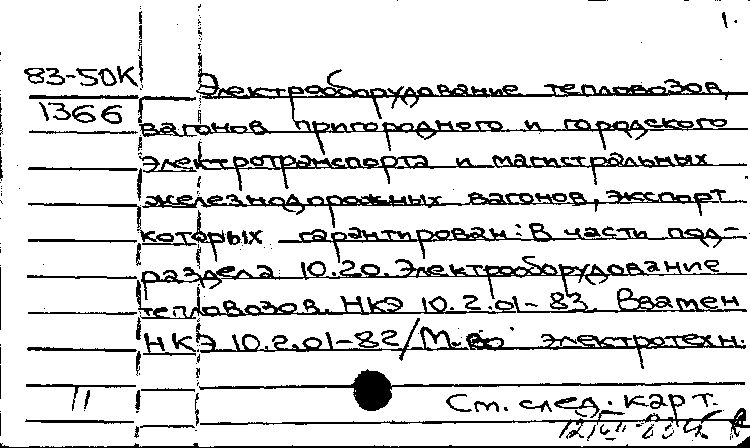 1.
83-50К Электрооборудование тепловозов,
1366 вагонов пригородного и городского
электротранспорта и магистральных
железнодорожных вагонов, экспорт
которых гарантирован: В части под-
раздела 10.20. Электрооборудование
тепловозов. НКЭ 10.2.01-83. Взамен
НКЭ 10.2.01-82/М-во электротехн.
11 См. след. карт.